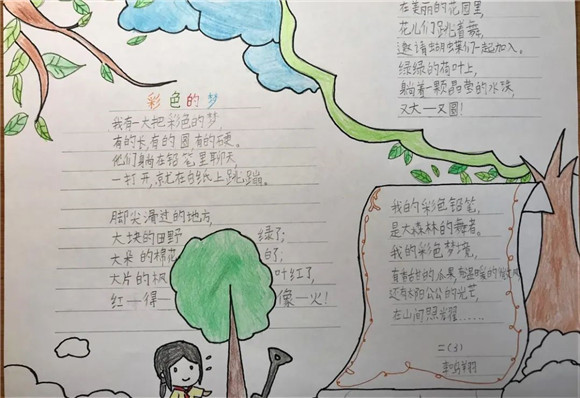 彩色的梦
我有一大把彩色的梦,
有的长,有的圆,有的硬。
他们躺在铅笔里聊天,
一打开,就在白纸上跳蹦。
脚尖滑过的地方,
大块的田野 绿了;
大朵的棉花 白了;
大片的枫 叶红了,
红—得— 像—火!
在美丽的花园里,
花儿们跳着舞,
邀请蝴蝶们一起加入。
绿绿的荷叶上,
躺着一颗晶莹的水珠,
又大—又圆!
我的彩色铅笔,
是大森林的舞者。
我的彩色梦境,
有香甜的水果,有温暖的
还有太阳公公的光芒
在山间照耀……
二(3)